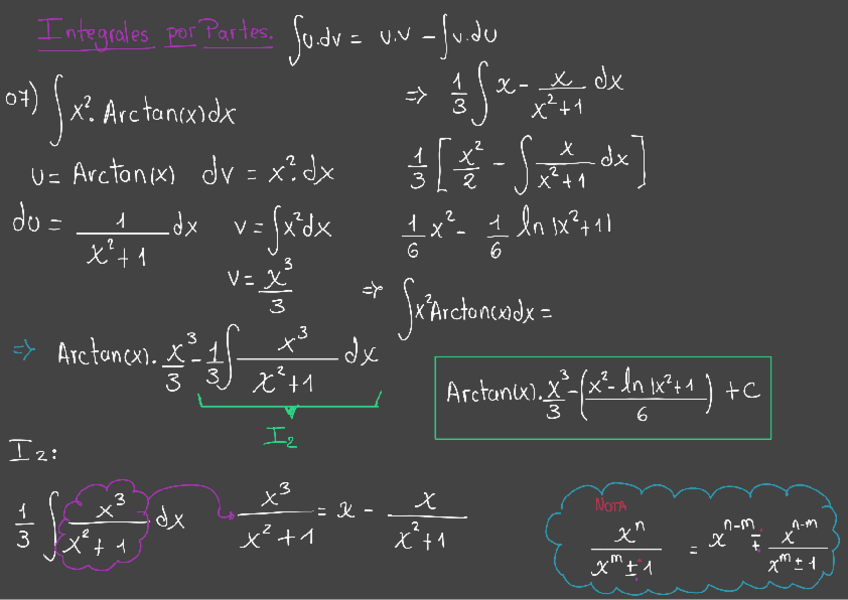 Integrales por Partes. ∫u.dv = u.v - ∫v.du
07) ∫x². Arctan(x)dx
u = Arctan(x) dv = x².dx
du = 1/(x²+1) dx v = ∫x²dx
v = x³/3
⇒ Arctan(x). x³/3 - 1/3 ∫ x³/(x²+1) dx
I₂
I₂:
1/3 ∫ x³/(x²+1) dx → x³/(x²+1) = x - x/(x²+1)
⇒ 1/3 ∫ x - x/(x²+1) dx
1/3 [x²/2 - ∫ x/(x²+1) dx]
1/6 x² - 1/6 ln|x²+1|
⇒ ∫x²Arctan(x)dx =
Arctan(x). x³/3 - (x² - ln|x²+1)/6 + C
NOTA
xⁿ/(xᵐ ± 1) = xⁿ⁻ᵐ ∓ xⁿ⁻ᵐ/(xᵐ ± 1)